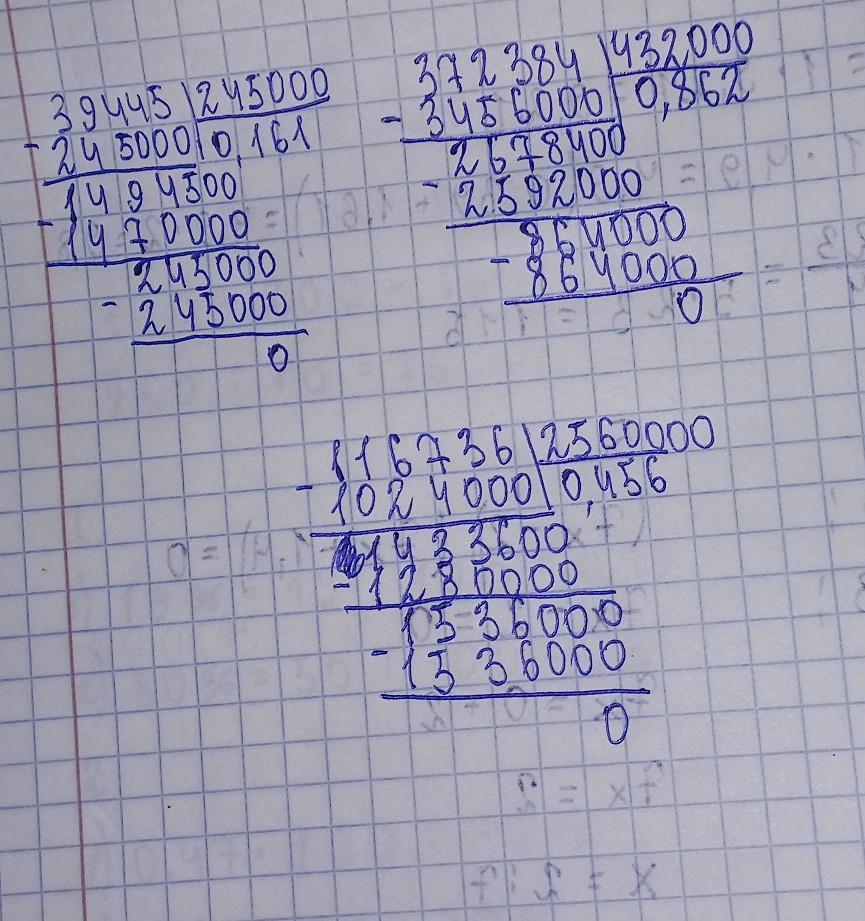 39445 | 245000
- 245000 | 0,161
1494500
- 1470000
245000
- 245000
0
372384 | 432000
- 3456000 | 0,862
2678400
- 2592000
864000
- 864000
0
116736 | 2560000
- 1024000 | 0,456
1433600
- 1280000
1536000
- 1536000
0